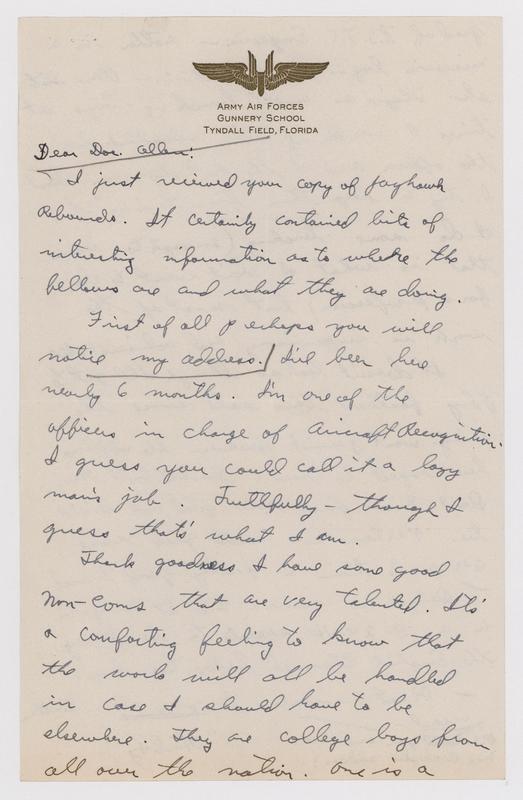 ARMY AIR FORCES
GUNNERY SCHOOL
TYNDALL FIELD, FLORIDA
Dear Doc. Allen:
I just received your copy of Jayhawk
Rebounds. It certainly contained bits of
interesting information as to where the
fellows are and what they are doing.
First of all perhaps you will
notice my address. I've been here
nearly 6 months. I'm one of the
officers in charge of Aircraft Recognition.
I guess you could call it a lazy
man's job. Truthfully - though I
guess that's what I am.
Thank goodness I have some good
non-coms that are very talented. It's
a comforting feeling to know that
the work will all be handled
in case I should have to be
elsewhere. They are college boys from
all over the nation. One is a